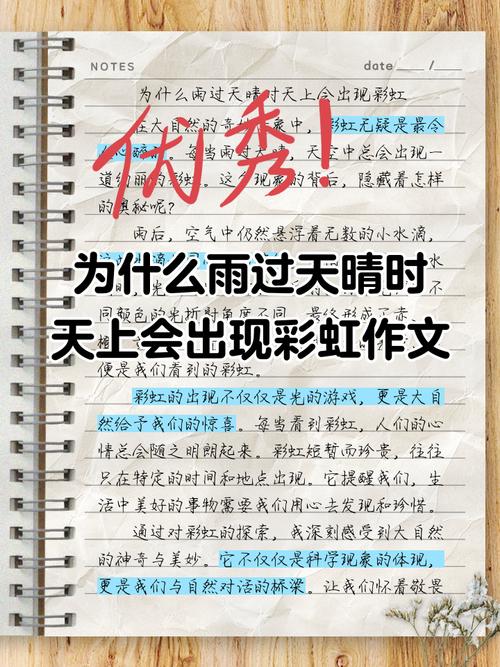 NOTES
date / 
为什么雨过天晴时天上会出现彩虹
优秀!
在大自然的奇妙 象中,彩虹无疑是最令
。每当雨过天晴,天空中总会出现一
道绚丽的彩虹。这个现象的背后,隐藏着怎样
的奥秘呢?
雨后,空气中仍然悬浮着无数的小水滴,
为什么雨过天晴时
天上会出现彩虹作文
同颜色的光折射角度不同,最终形成了赤、
便是我们看到的彩虹。
彩虹的出现不仅仅是光的游戏,更是大自
然给予我们的惊喜。每当看到彩虹,人们的心
情总会随之明朗起来。彩虹短暂而珍贵,往往
只在特定的时间和地点出现。它提醒我们,生
活中美好的事物需要我们用心去发现和珍惜。
通过对彩虹的探索,我深刻感受到大自然
的神奇与美妙。它不仅仅是科学现象的体现,
更是我们与自然对话的桥梁。让我们怀着敬畏